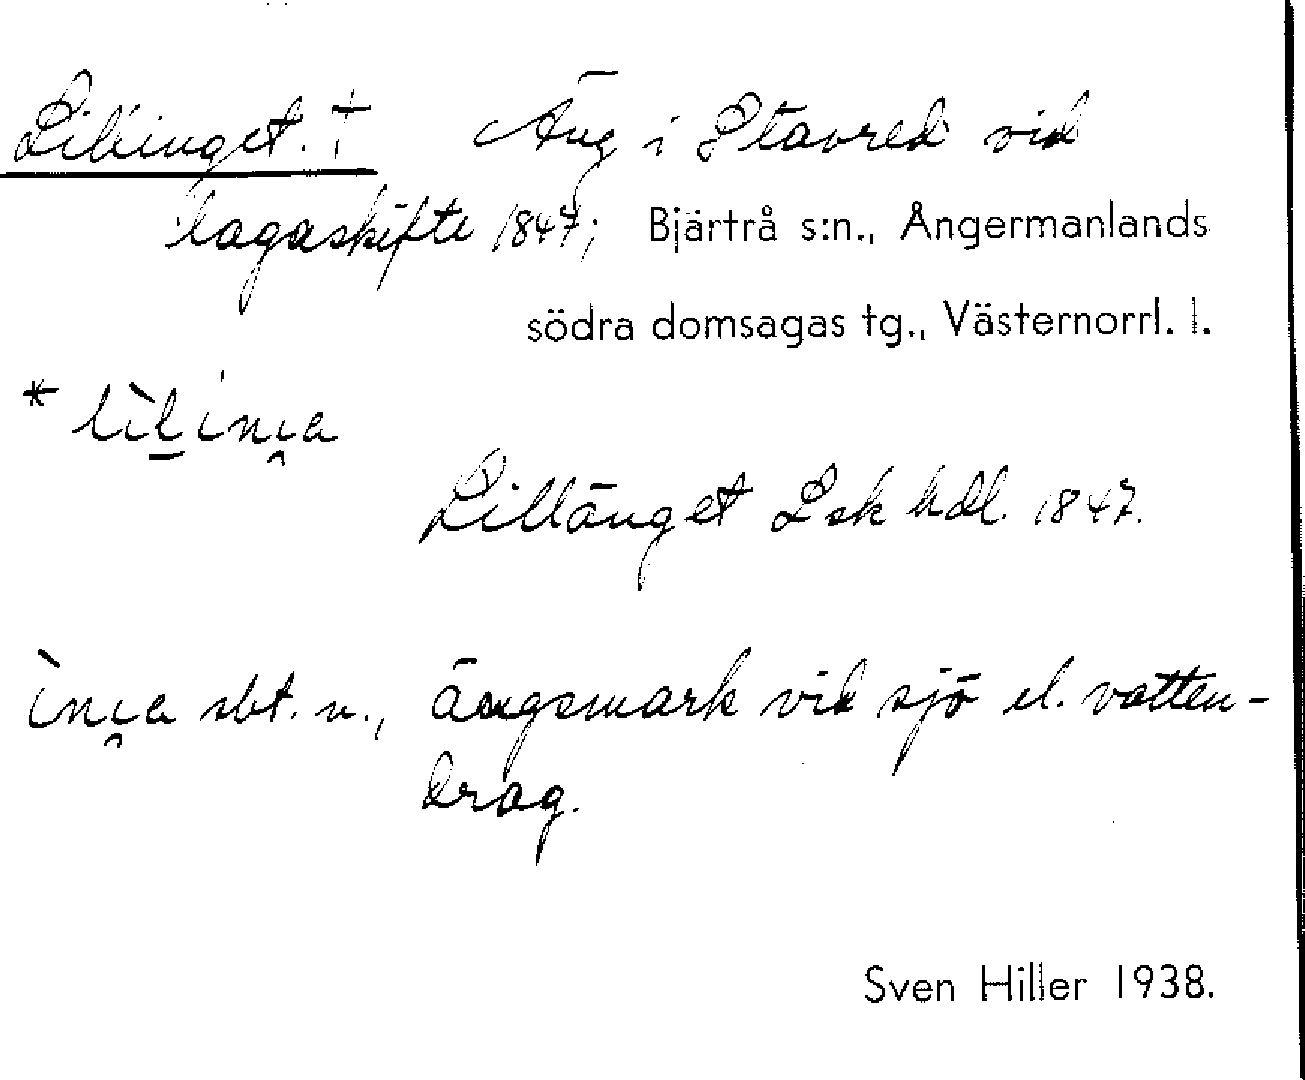 Lillinget. † Äng i Stavred vid
lagaskifte 1847; Bjärtrå s:n., Ångermanlands
södra domsagas tg., Västernorrl. l.
Lillänget Lsk hdl. 1847.
sbt. n., ängsmark vid sjö el. vatten-
drag.
Sven Hiller 1938.